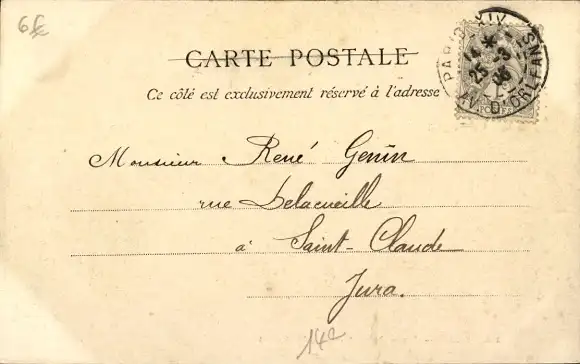 6€
CARTE POSTALE
Ce côté est exclusivement réservé à l'adresse
PARIS XIV
AV. D'ORLEANS
Monsieur René Genin
rue Delacueille
à Saint-Claude
Jura.
14e